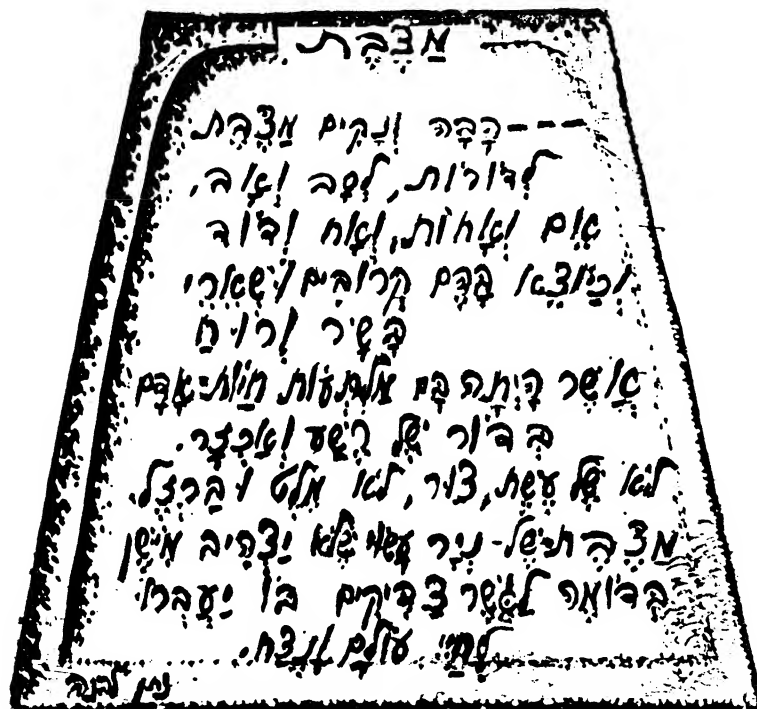 מַצֶּבֶת
---הָבָה וְנָקִים מַצֶּבֶת
לְדוֹרוֹת, לְסָב וְאָב,
אֵם וְאָחוֹת, וְאָח וְדוֹד
וְכַיּוֹצֵא בָּהֶם קְרוֹבִים וּשְׁאֵרֵי
בָּשָׂר וְרוּחַ
אֲשֶׁר הָיְתָה בָּם מַלְתְּעוֹת חַיּוֹת-אָדָם
בְּדוֹר שֶׁל רֶשַׁע וְאַכְזָר.
לֹא שֶׁל עֶשֶׁת, צוּר, לֹא מֶלֶט וּבַרְזֶל,
מַצֶּבֶת-שֶׁל-נְיָר עָשׂוּי שֶׁלֹּא יַצְהִיב מִיֹּשֶׁן
בְּדוֹמֶה לַגֶּשֶׁר צַדִּיקִים בּוֹ יַעַבְרוּ
לְחַיֵּי עוֹלָם וָנֶצַח.
נתן